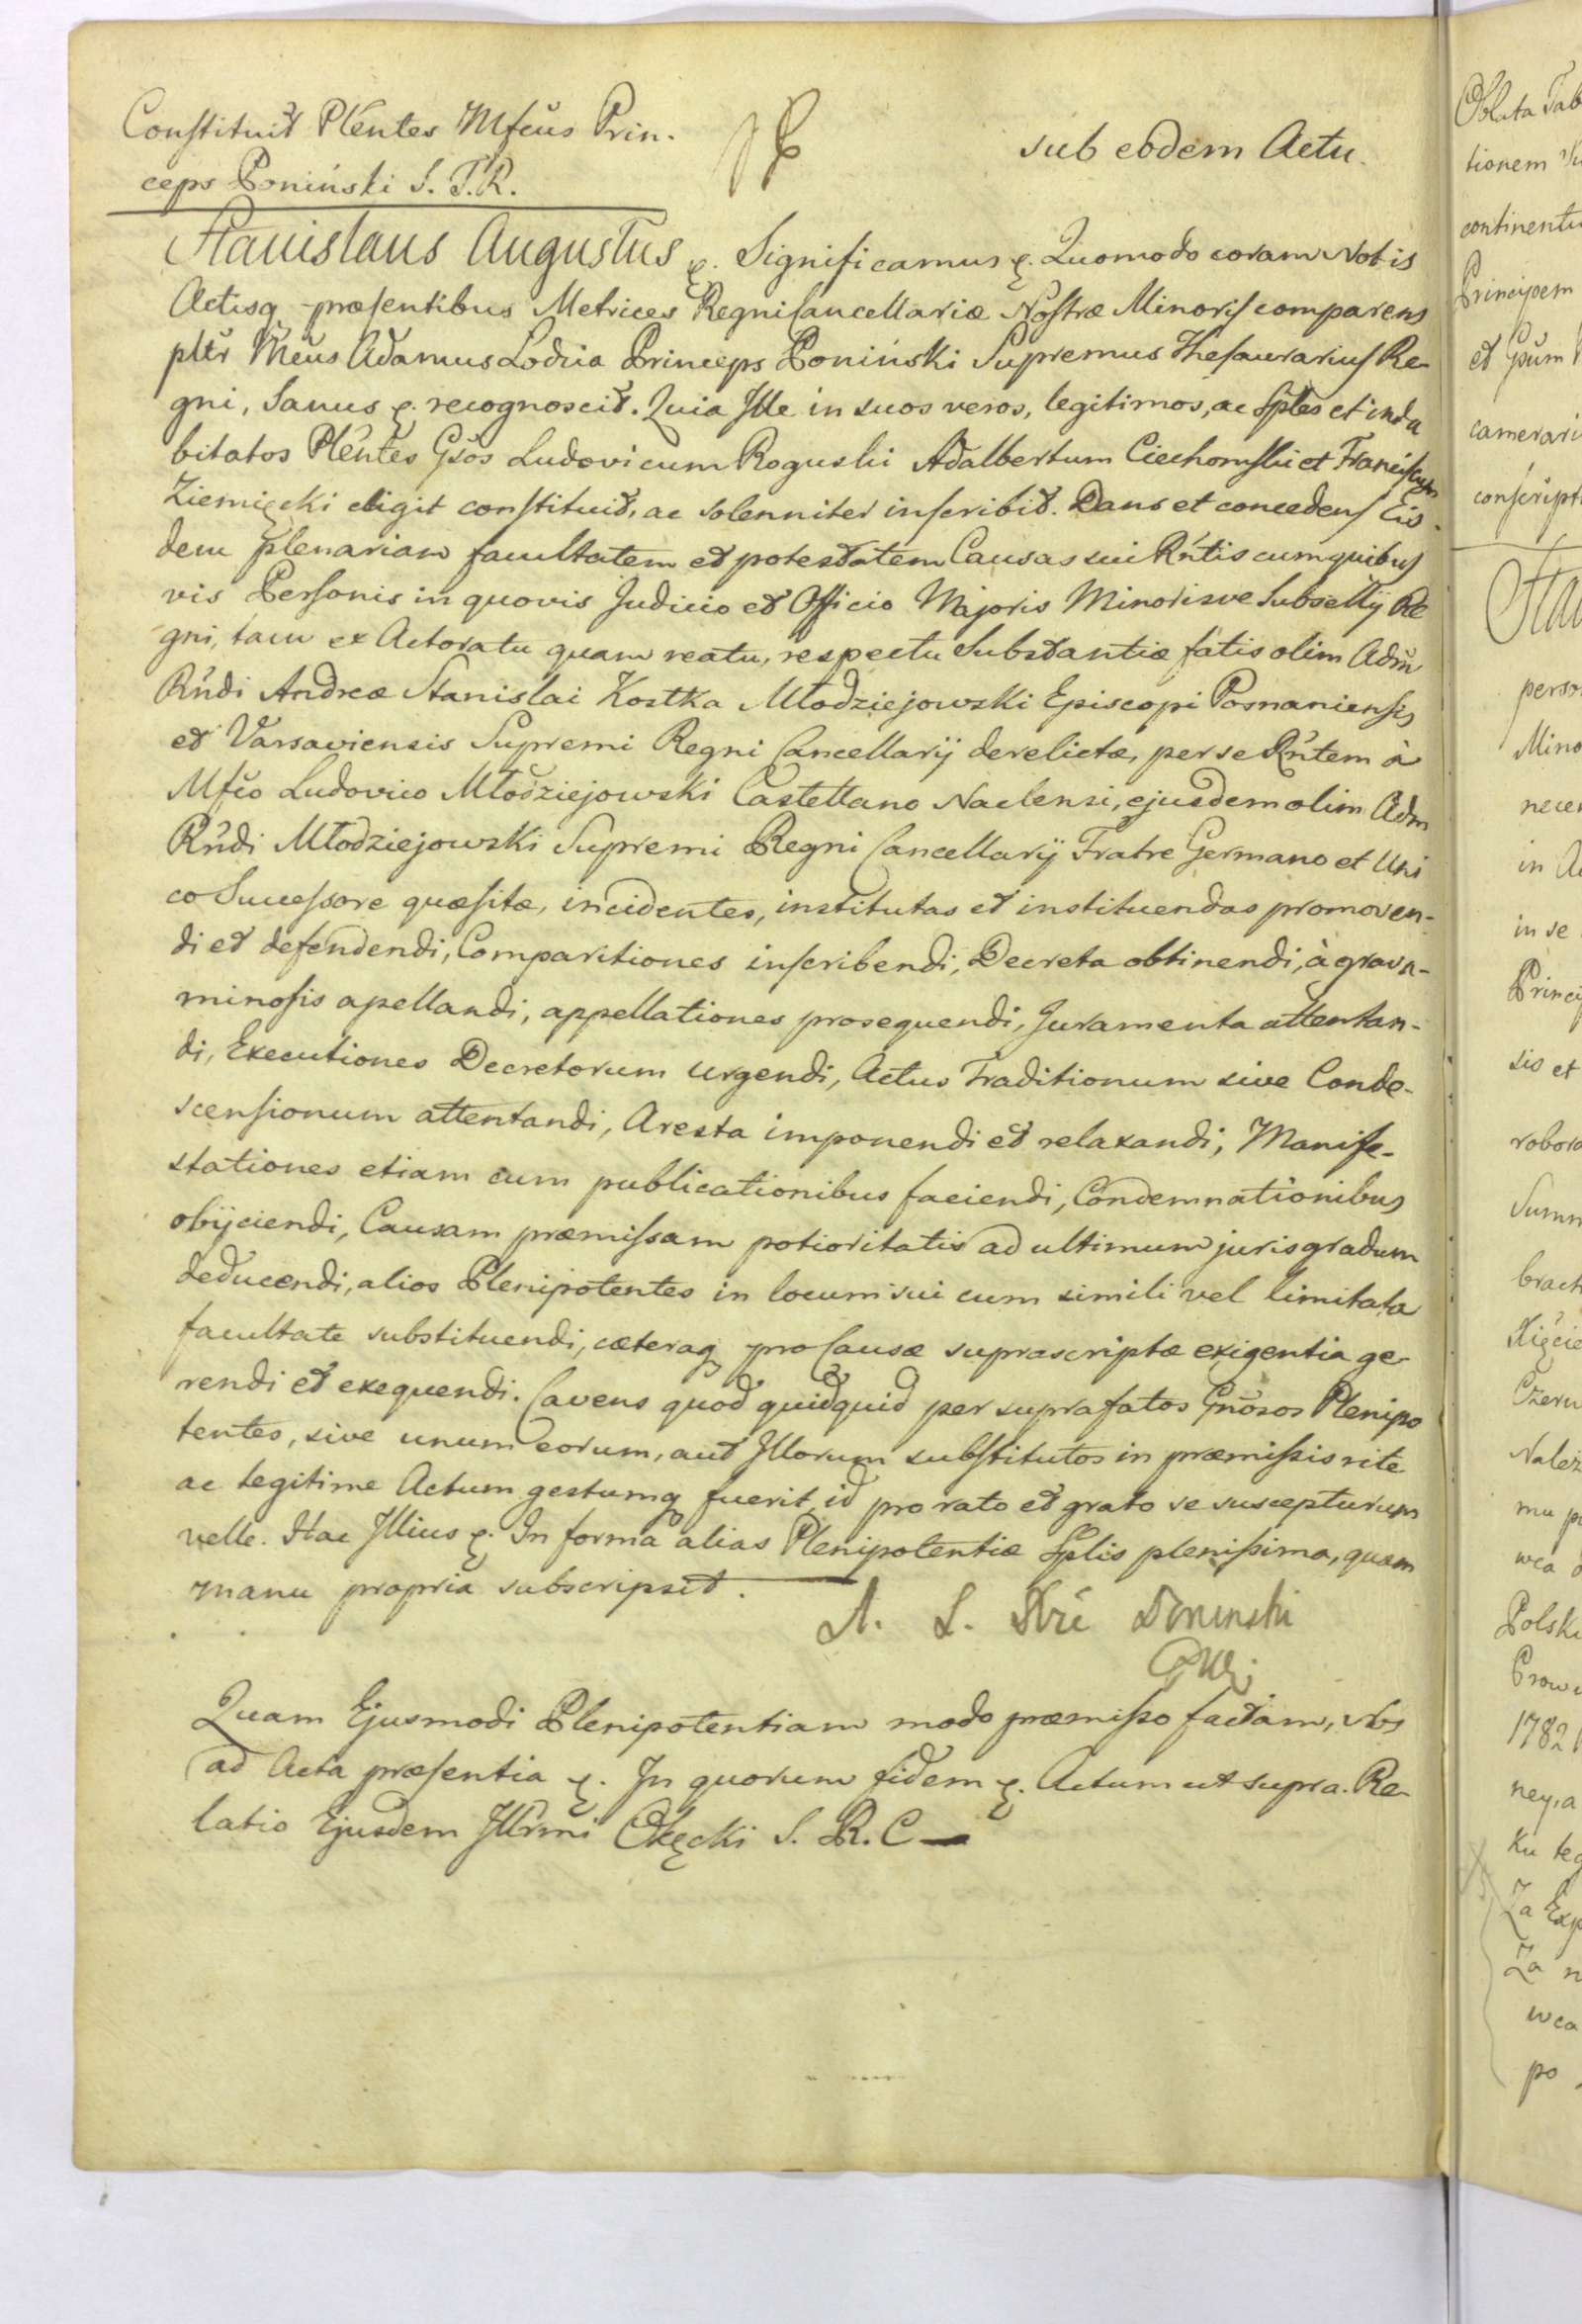 Constituit Plentes Mfcus Prin-
ceps Poniński S. T. R.
sub eodem Actu.
Stanislaus Augustus &. Significamus &. Quomodo coram Nobis
Actisq præsentibus Metrices Regni Cancellariæ Nostræ Minoris comparens
pltr Mcus Adamus Lodzia Princeps Poniński Supremus Thesaurarius Re-
gni, Sanus &. recognoscit. Quia Ille in suos veros, legitimos, ac Sples et indu
bitatos Plentes Gsos Ludovicum Roguski Adalbertum Ciechomski et Franciscum
Ziemięcki eligit constituit, ac solenniter inscribit. Dans et concedens Eis-
dem plenariam facultatem et potestatem Causas sui Rntis cum quibus
vis Personis in quovis Judicio et Officio Majoris Minorisve Subsellij Re
gni, tam ex Actoratu quam reatu, respectu Substantiæ fatis olim Adm
Rndi Andreæ Stanislai Kostka Młodziejowski Episcopi Posnaniensis
et Varsaviensis Supremi Regni Cancellarij derelictæ, per se Rntem à
Mfco Ludovico Młodziejowski Castellano Naclensi, ejusdem olim Adm
Rndi Młodziejowski Supremi Regni Cancellarij Fratre Germano et Uni
co Successore quæsitæ, incidentes, institutas et instituendas promoven-
di et defendendi, Comparitiones inscribendi, Decreta obtinendi, à grava-
minosis apellandi, appellationes prosequendi, Juramenta attentan-
di, Executiones Decretorum urgendi, Actus Traditionum sive Conde-
scensionum attentandi, Aresta imponendi et relaxandi, Manife-
stationes etiam cum publicationibus faciendi, Condemnationibus
obijciendi, Causam præmissam potioritatis ad ultimum juris gradum
deducendi, alios Plenipotentes in locum sui cum simili vel limitata
facultate substituendi, cæteraq pro Causæ suprascriptæ exigentia ge-
rendi et exequendi. Cavens quod quidquid per suprafatos Gnosos Plenipo
tentes, sive unum eorum, aut Illorum substitutos in præmissis rite
ac legitime Actum gestumq fuerit, id pro rato et grato se suscepturum
velle. Hac Illius &. In forma alias Plenipotentiæ Splis plenissima, quam
manu propria subscripsit.
A. L. Poninski
Quam Ejusmodi Plenipotentiam modo præmisso factam, Nos
ad Acta præsentia &. In quorum fidem &. Actum ut supra. Re-
latio Ejusdem Illrmi Okęcki S. R. C
Oblata Tab
tionem
continentu
Principem
et Gsum
camerari
conscripti
Sta
perso
Mino
necen
in A
in se
Princi
sis et
robora
Summ
brach
Xięcie
Czerw
Należ
mu p
wca d
Polski
Prow
1782
ney, a
ku teg
Za Exp
Za n
wca
po